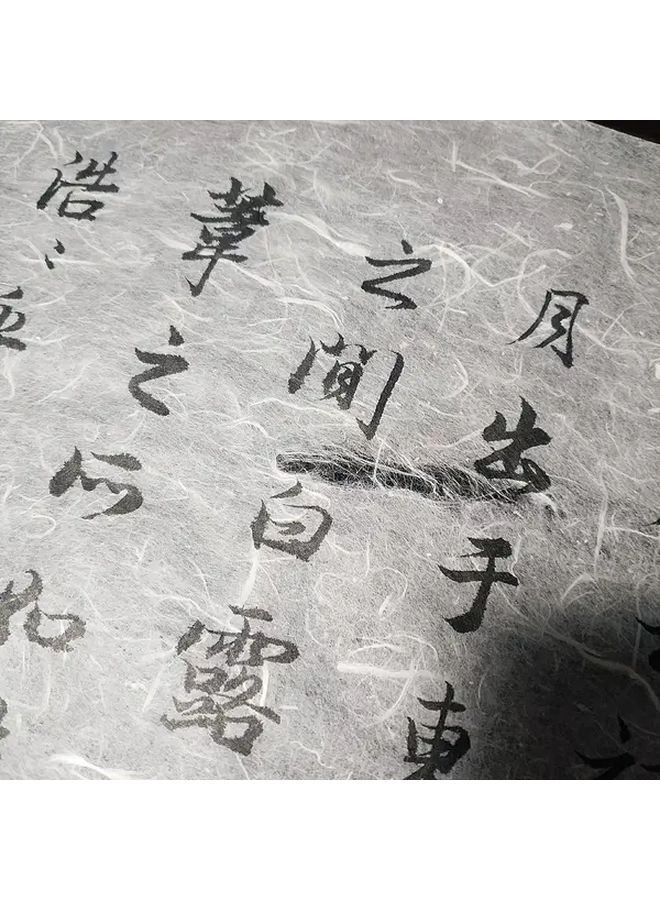 月出于東
之間白露
葦之所如
浩〻